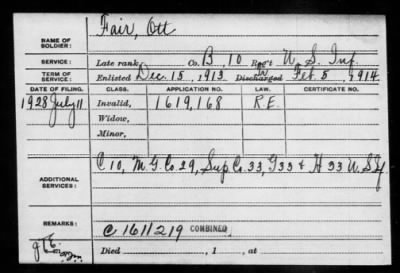 NAME OF SOLDIER: Fair, Ott
SERVICE: Late rank Co. B, 10 Reg't U.S. Inf.
TERM OF SERVICE: Enlisted Dec. 15, 1913 Discharged Feb. 5, 1914.
DATE OF FILING. CLASS. APPLICATION NO. LAW. CERTIFICATE NO.
1928 July 11 Invalid, 1619,168 R.E.
Widow,
Minor,
ADDITIONAL SERVICES: C 10, M.G. Co 29, Sup Co. 33, G 33 & H 33 U.S.
REMARKS: C 1611219 COMBINED
Died , 1 , at